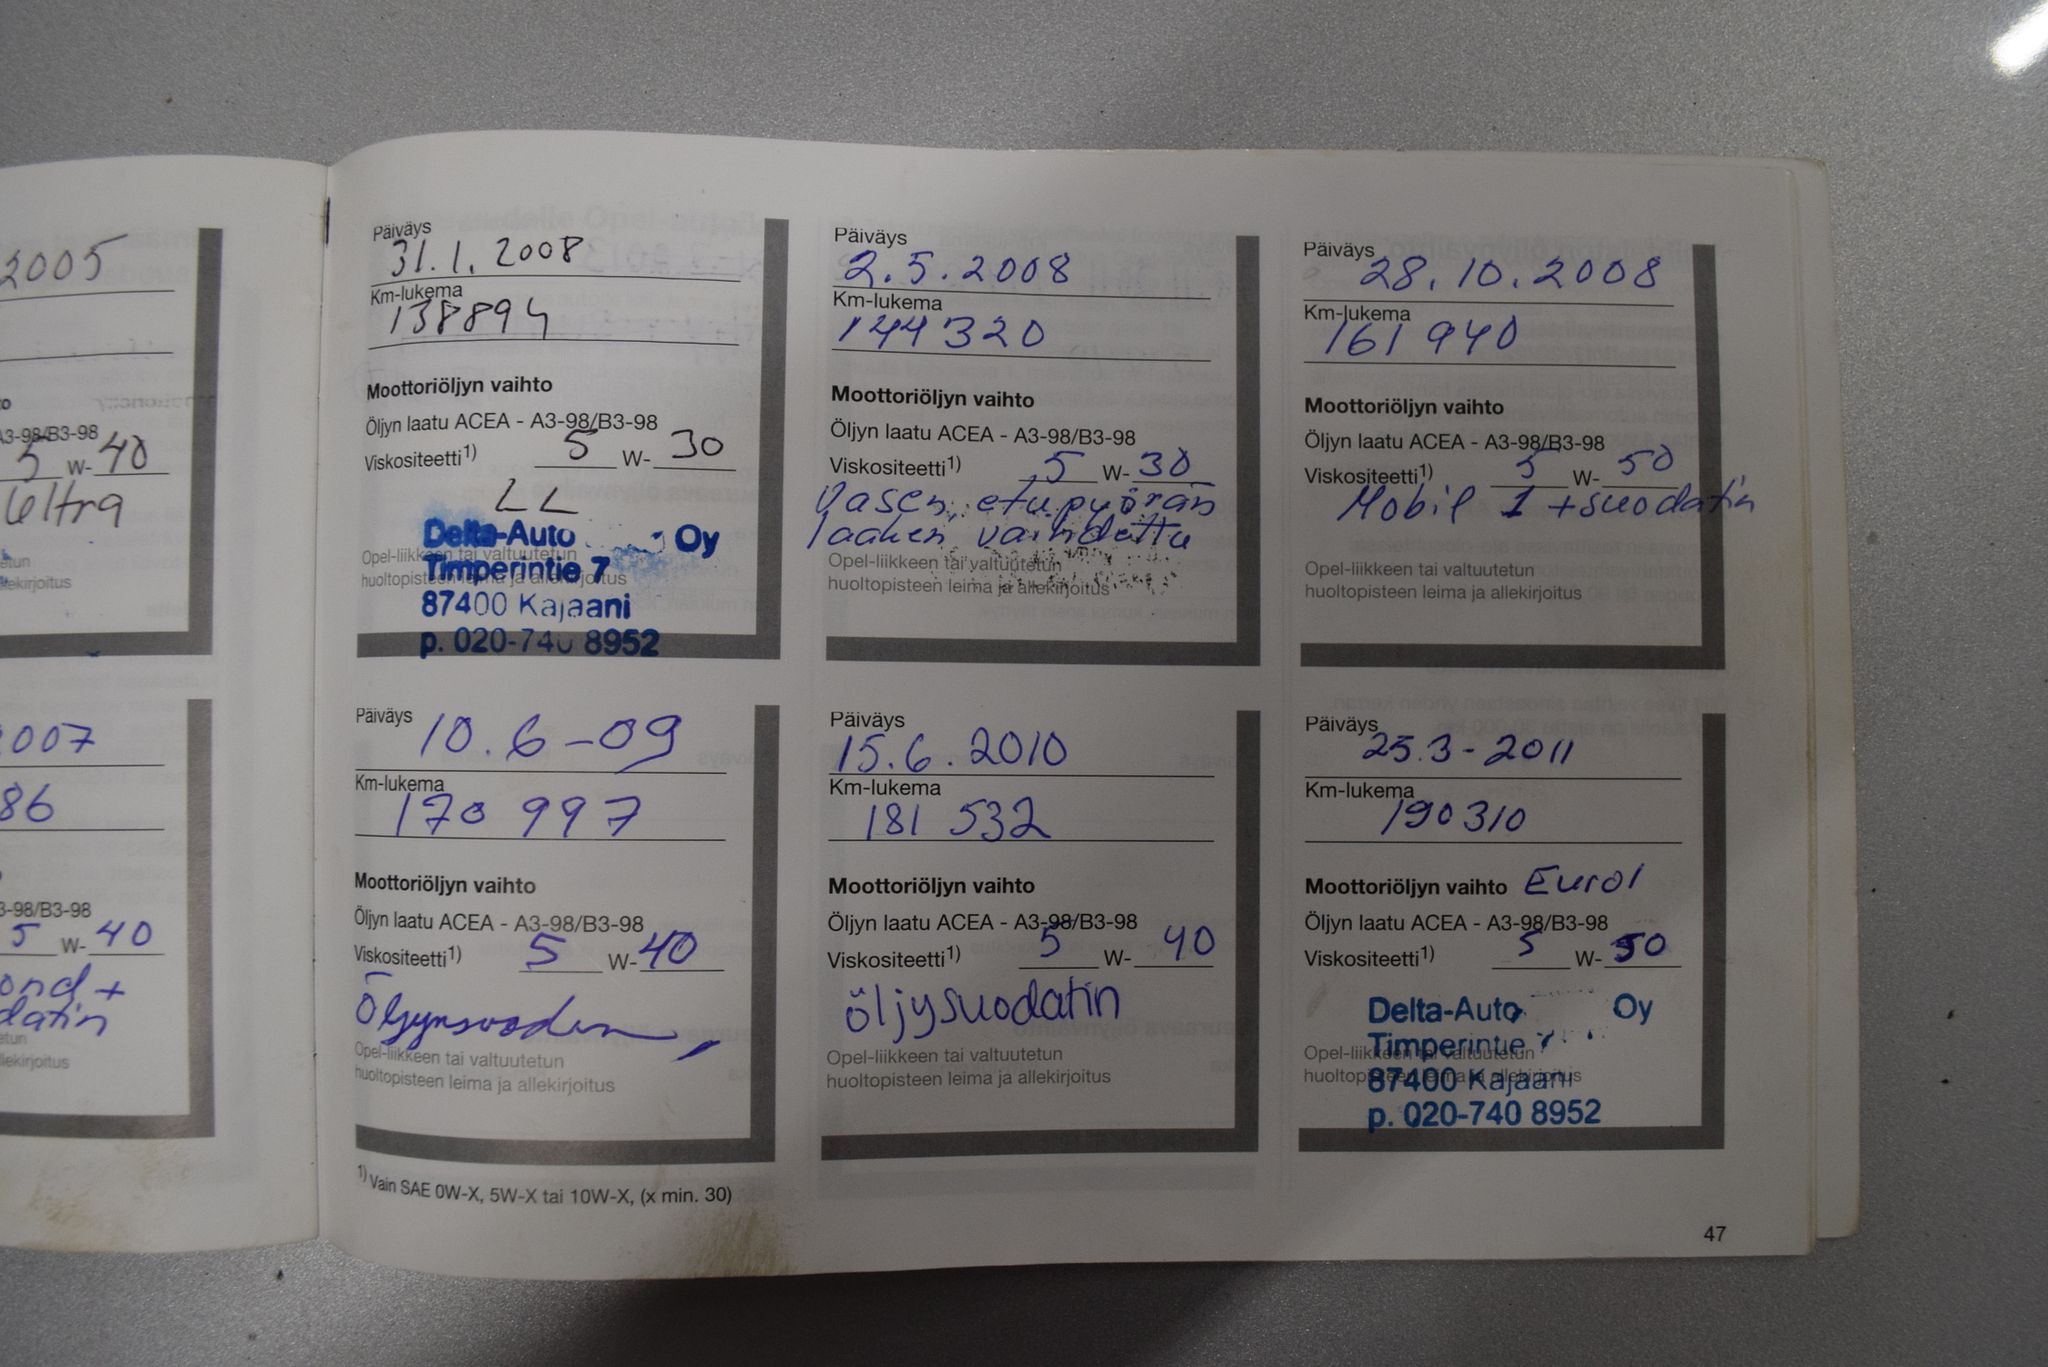 2005
A3-98/B3-98
5 W- 40
Ultra
etun
llekirjoitus
007
86
3-98/B3-98
5 W- 40
ond +
datin
etun
llekirjoitus
Päiväys
31.1.2008
Km-lukema
138894
Moottoriöljyn vaihto
Öljyn laatu ACEA - A3-98/B3-98
Viskositeetti1) 5 W- 30
LL
Delta-Auto Oy
Opel-liikkeen tai valtuutetun
Timperintie 7
huoltopisteen leima ja allekirjoitus
87400 Kajaani
p. 020-740 8952
Päiväys
2.5.2008
Km-lukema
144320
Moottoriöljyn vaihto
Öljyn laatu ACEA - A3-98/B3-98
Viskositeetti1) 5 W- 30
Vasen etupyörän
laaken vaihdettu
Opel-liikkeen tai valtuutetun
huoltopisteen leima ja allekirjoitus
Päiväys
28.10.2008
Km-lukema
161940
Moottoriöljyn vaihto
Öljyn laatu ACEA - A3-98/B3-98
Viskositeetti1) 5 W- 50
Mobil 1 + suodatin
Opel-liikkeen tai valtuutetun
huoltopisteen leima ja allekirjoitus
Päiväys
10.6-09
Km-lukema
170 997
Moottoriöljyn vaihto
Öljyn laatu ACEA - A3-98/B3-98
Viskositeetti1) 5 W- 40
Opel-liikkeen tai valtuutetun
huoltopisteen leima ja allekirjoitus
Päiväys
15.6.2010
Km-lukema
181 532
Moottoriöljyn vaihto
Öljyn laatu ACEA - A3-98/B3-98
Viskositeetti1) 5 W- 40
öljysuodatin
Opel-liikkeen tai valtuutetun
huoltopisteen leima ja allekirjoitus
Päiväys
25.3-2011
Km-lukema
190310
Moottoriöljyn vaihto Eurol
Öljyn laatu ACEA - A3-98/B3-98
Viskositeetti1) 5 W- 50
Delta-Auto Oy
Timperintie 7
Opel-liikkeen tai valtuutetun
huoltopisteen leima ja allekirjoitus
87400 Kajaani
p. 020-740 8952
1) Vain SAE 0W-X, 5W-X tai 10W-X, (x min. 30)
47